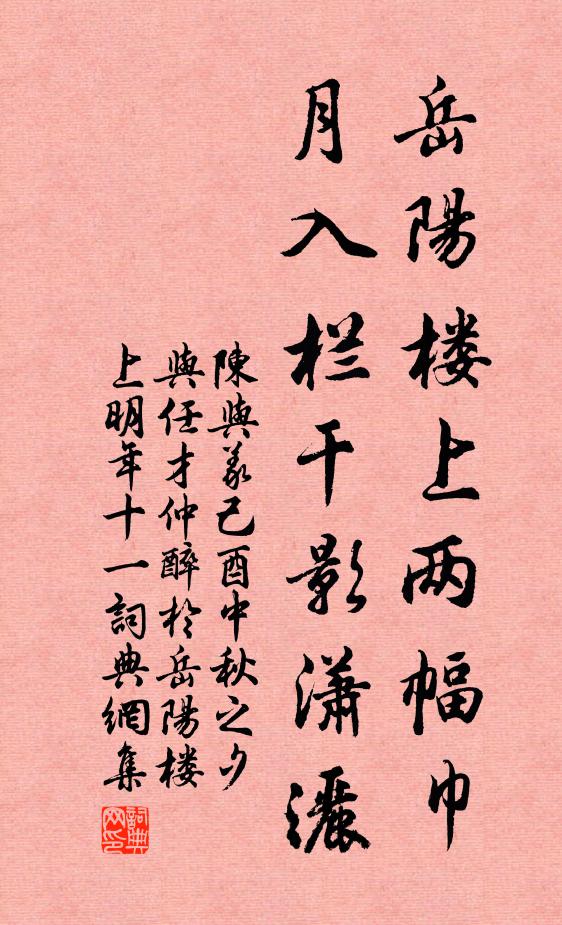 岳陽楼上两幅巾
月入栏干影瀟灑
陳與義己酉中秋之夕
與任才仲醉於岳陽楼
上明年十一詞典網集
詞典
网印